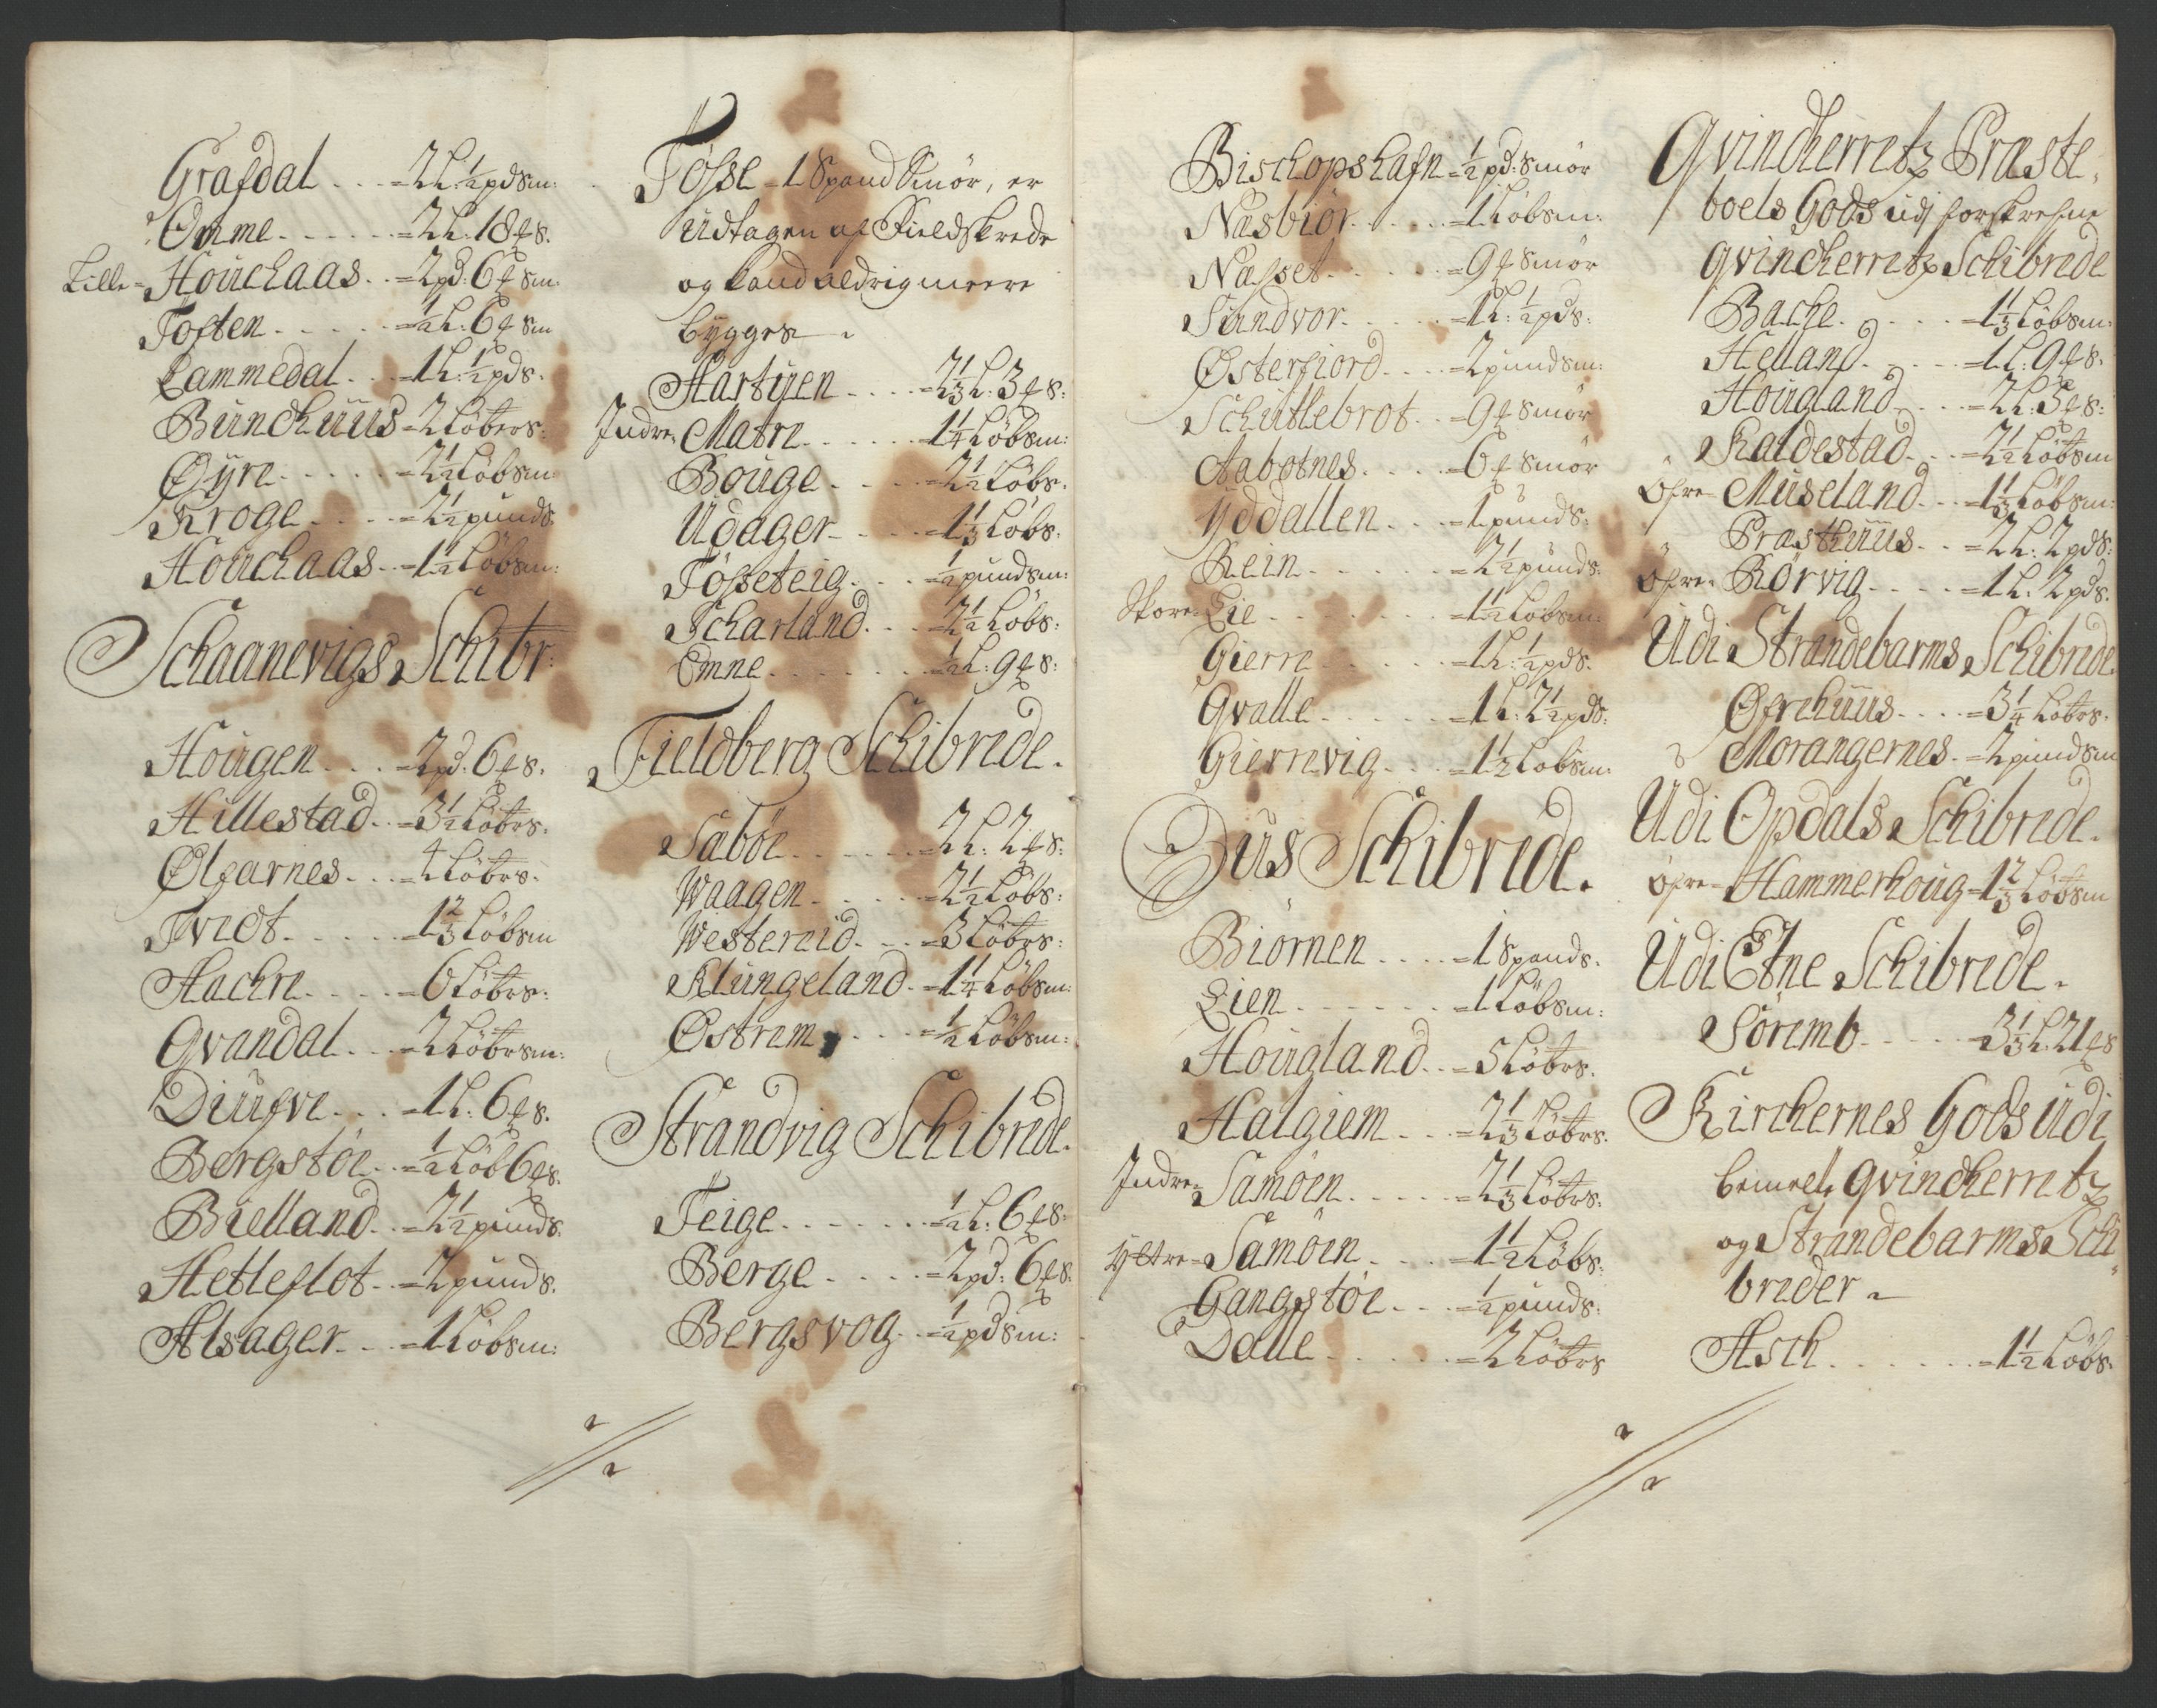 Grafdal . . . = 2 L. ½ pdsm:
Omme . . . . . = 2 L. 18 ℔s.
Lille = Houchaas . . = 2 pd. 6 ℔ sm.
Toften . . . . . = ½ L: 6 ℔ sm
Lammedal . . = 1 L: ½ pds.
Bundhuus = 2 Löbers.
Øyre . . . . . = 2½ Löbsm:
Kroge . . . . = 2½ punds.
Houchaas . . = 1½ Löbsm:
Schaanevigs Schibr:
Hougen . . . = 2 pd. 6 ℔s.
Hillestad . . = 3½ Löbrs.
Ølfarnes . . . = 4 Löbrs.
Tvedt . . . . . 1⅔ Löbsm
Hachre . . . . = 6 Löbrs:
Qvandal . . . = 2 Löbrsm:
Diufve . . . = 1 L: 6 ℔s.
Bergstöe . . = ½ Löb 6 ℔s.
Bielland . . = 2½ punds.
Hetleflot . . = 2 punds.
Alsager . . . = 1 Löbsm:
Tösse = 1 Spand Smör, er
Udtagen af Fieldskrede
og kand aldrig meere
bygges .
Hartuen . . . . = 2⅓ L. 3 ℔s:
Indre = Matre . . . . . . 1¼ Löbsm:
Bouge . . . . = 2½ Löbs.
Udager . . . = 1⅓ Löbs.
Tösseteig . . . = ½ pundsm:
Scharland . . . = 2½ Löbs:
Emne . . . . . . . = ½ L: 9 ℔s:
Fieldberg Schibrede.
Saböe . . . . . . = 2 L: 2 ℔s:
Waagen . . . . . = 2½ Löbs:
Westereid . . . = 3 Löbrs:
Klungeland . = 1¼ Löbsm:
Østrem . . . . = ½ Löbsm:
Strandvig Schibrede.
Teige . . . . . . . = ½ L: 6 ℔s:
Berge . . . . . = 2 pd: 6 ℔s.
Bergsvog . . = ½ pdsm:
Bischopshafn = ½ pd: smör
Næsbiör . . . . . = 1 Löbsm:
Næsset . . . . . . = 9 ℔ smör
Sundvor . . . . . = 1 L: ½ pds:
Østerfiord . . . . = 2 pundsm:
Schutlebrot . . = 9 ℔ smör
Aabotnes . . . . = 6 ℔ smör
Yddallen . . . . = 1 punds:
Rein . . . . . . = 2½ punds:
Skore = Lie . . . . . . . . = 1½ Löbsm:
Gierre . . . . . . = 1 L: ½ pds.
Qvalle . . . . . . = 1 L: 2½ pds:
Gierrevig . . . = 1½ Löbsm:
Ous Schibrede.
Biörnen . . . . = 1 Spands.
Lien . . . . . . . = 1 Löbsm:
Hougland . . = 5 Löbrs.
Halgiem . . . = 2⅓ Löbrs:
Indre = Samöen . . . . . = 2⅓ Löbrs:
Yttre = Samöen . . . = 1½ Löbs:
Gangstöe . . . = ½ punds:
Dalle . . . . . . = 2 Löbrs
Qvindherretz Præste,
boels Gods udj forskrefne
Qvindherretz Schibrede
Bache . . . . . = 1⅓ Löbsm:
Helland . . . . . = 1 L: 9 ℔s.
Hougland . . . = 2 L: 3 ℔s:
Kaldestad . . . = 2½ Löbsm
Öfre = Museland . . . = 1⅓ Löbsm:
Præsthuus . . = 2 L: 2 pds:
Öfre = Rörvig . . . . . = 1 L: 2 pds.
Udi Strandebarms Schibrede.
Øfrehuus . . . . = 3¼ Löbrs.
Morangernes . = 2 pundsm
Udi Opdals Schibrede.
Öfre = Hammerhoug = 1⅔ Löbsm
Udi Etne Schibrede.
Söremb . . . . . = 3⅓ L: 21 ℔s
Kirchernes Gods udi
bemelte Qvindherretz
og Strandebarms Schi"
breder .
Asch . . . . . . . = 1½ Löbs.